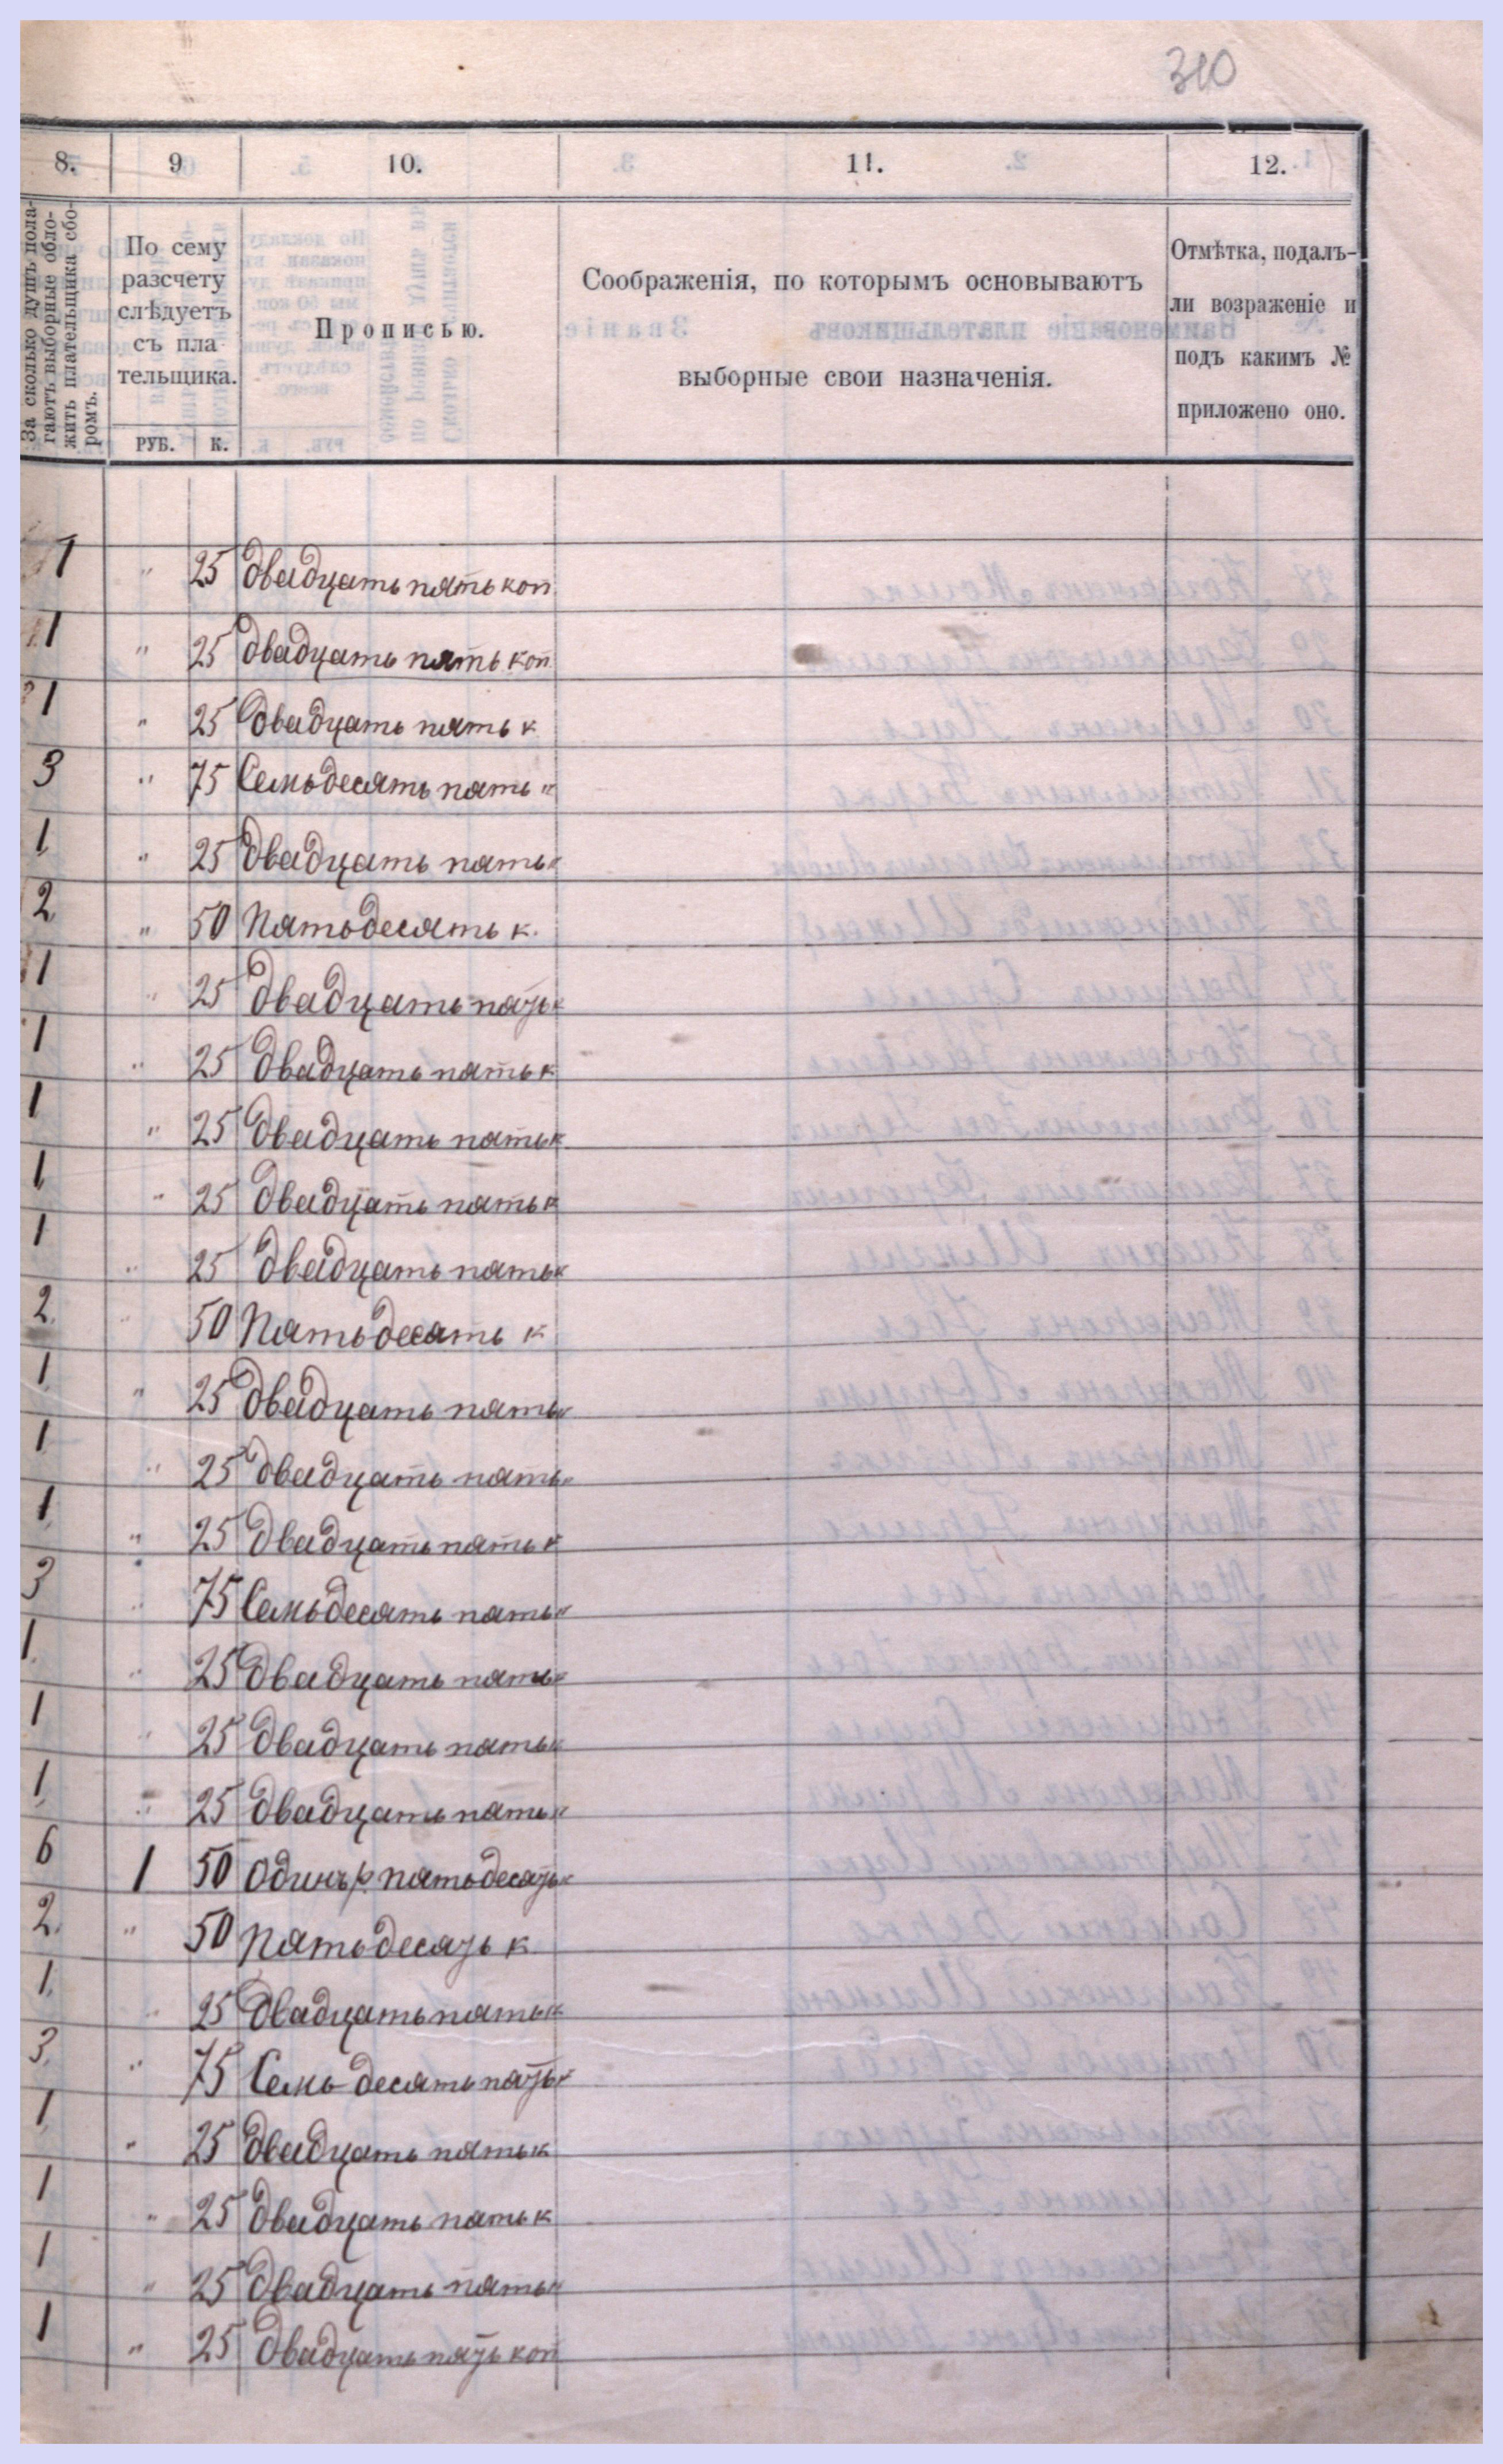 310
8. 9 10. 11. 12.
За сколько душъ пола-
гаютъ выборные обло-
жить плательщика сбо-
ромъ.
По сему
разсчету
слѣдуетъ
съ пла
тельщика.
РУБ. К.
Прописью.
Соображенія, по которымъ основываютъ
выборные свои назначенія.
Отмѣтка, подалъ-
ли возраженіе и
подъ какимъ №
приложено оно.
1 " 25 двадцать пять коп.
1 " 25 двадцать пять коп
1 " 25 двадцать пять к
3 " 75 Семьдесять пять к
1 " 25 двадцать пять к
2 " 50 Пятьдесять к.
1 " 25 двадцать пять к
1 " 25 двадцать пять к
1 " 25 двадцать пять к
1 " 25 двадцать пять к
1 " 25 двадцать пять к
2. " 50 Пятьдесять к
1 " 25 двадцать пять к
1 " 25 двадцать пять к
1 " 25 двадцать пять к
3 " 75 Семьдесять пять к
1. " 25 двадцать пять к
1 " 25 двадцать пять к
1 " 25 двадцать пять к
6 1 50 Одинъ р пятьдесять к
2. " 50 Пятьдесять к
1. " 25 двадцать пять к
3. " 75 Семь десять пять к
1 " 25 двадцать пять к
1 " 25 двадцать пять к
1 " 25 двадцать пять к
1 " 25 двадцать пять коп